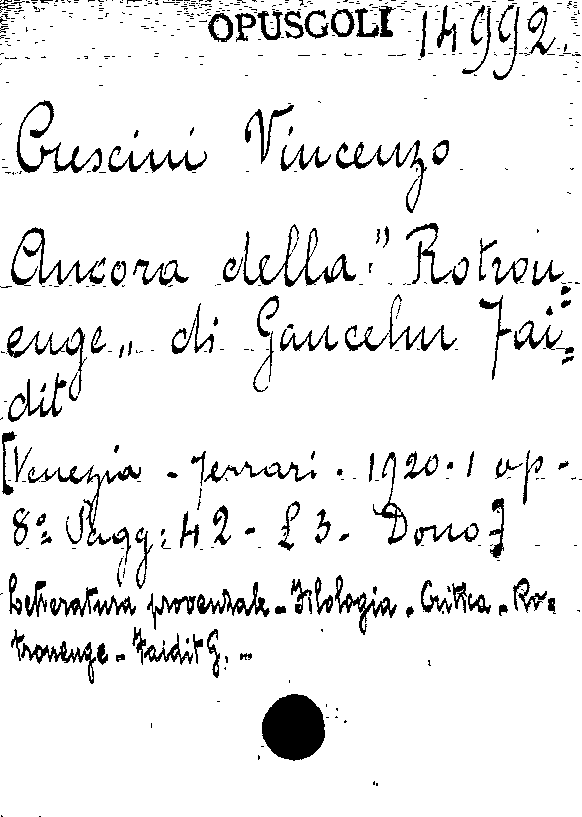 OPUSCOLI 14992.
Crescini Vincenzo
Ancora della "Rotrou=
enge" di Gaucelm Fai=
dit
[Venezia - Ferrari. 1920. 1 op -
8º Pagg: 42 - £ 3. Dono]
Letteratura provenzale - Filologia. Critica - Ro=
trouenge - Faidit G. -